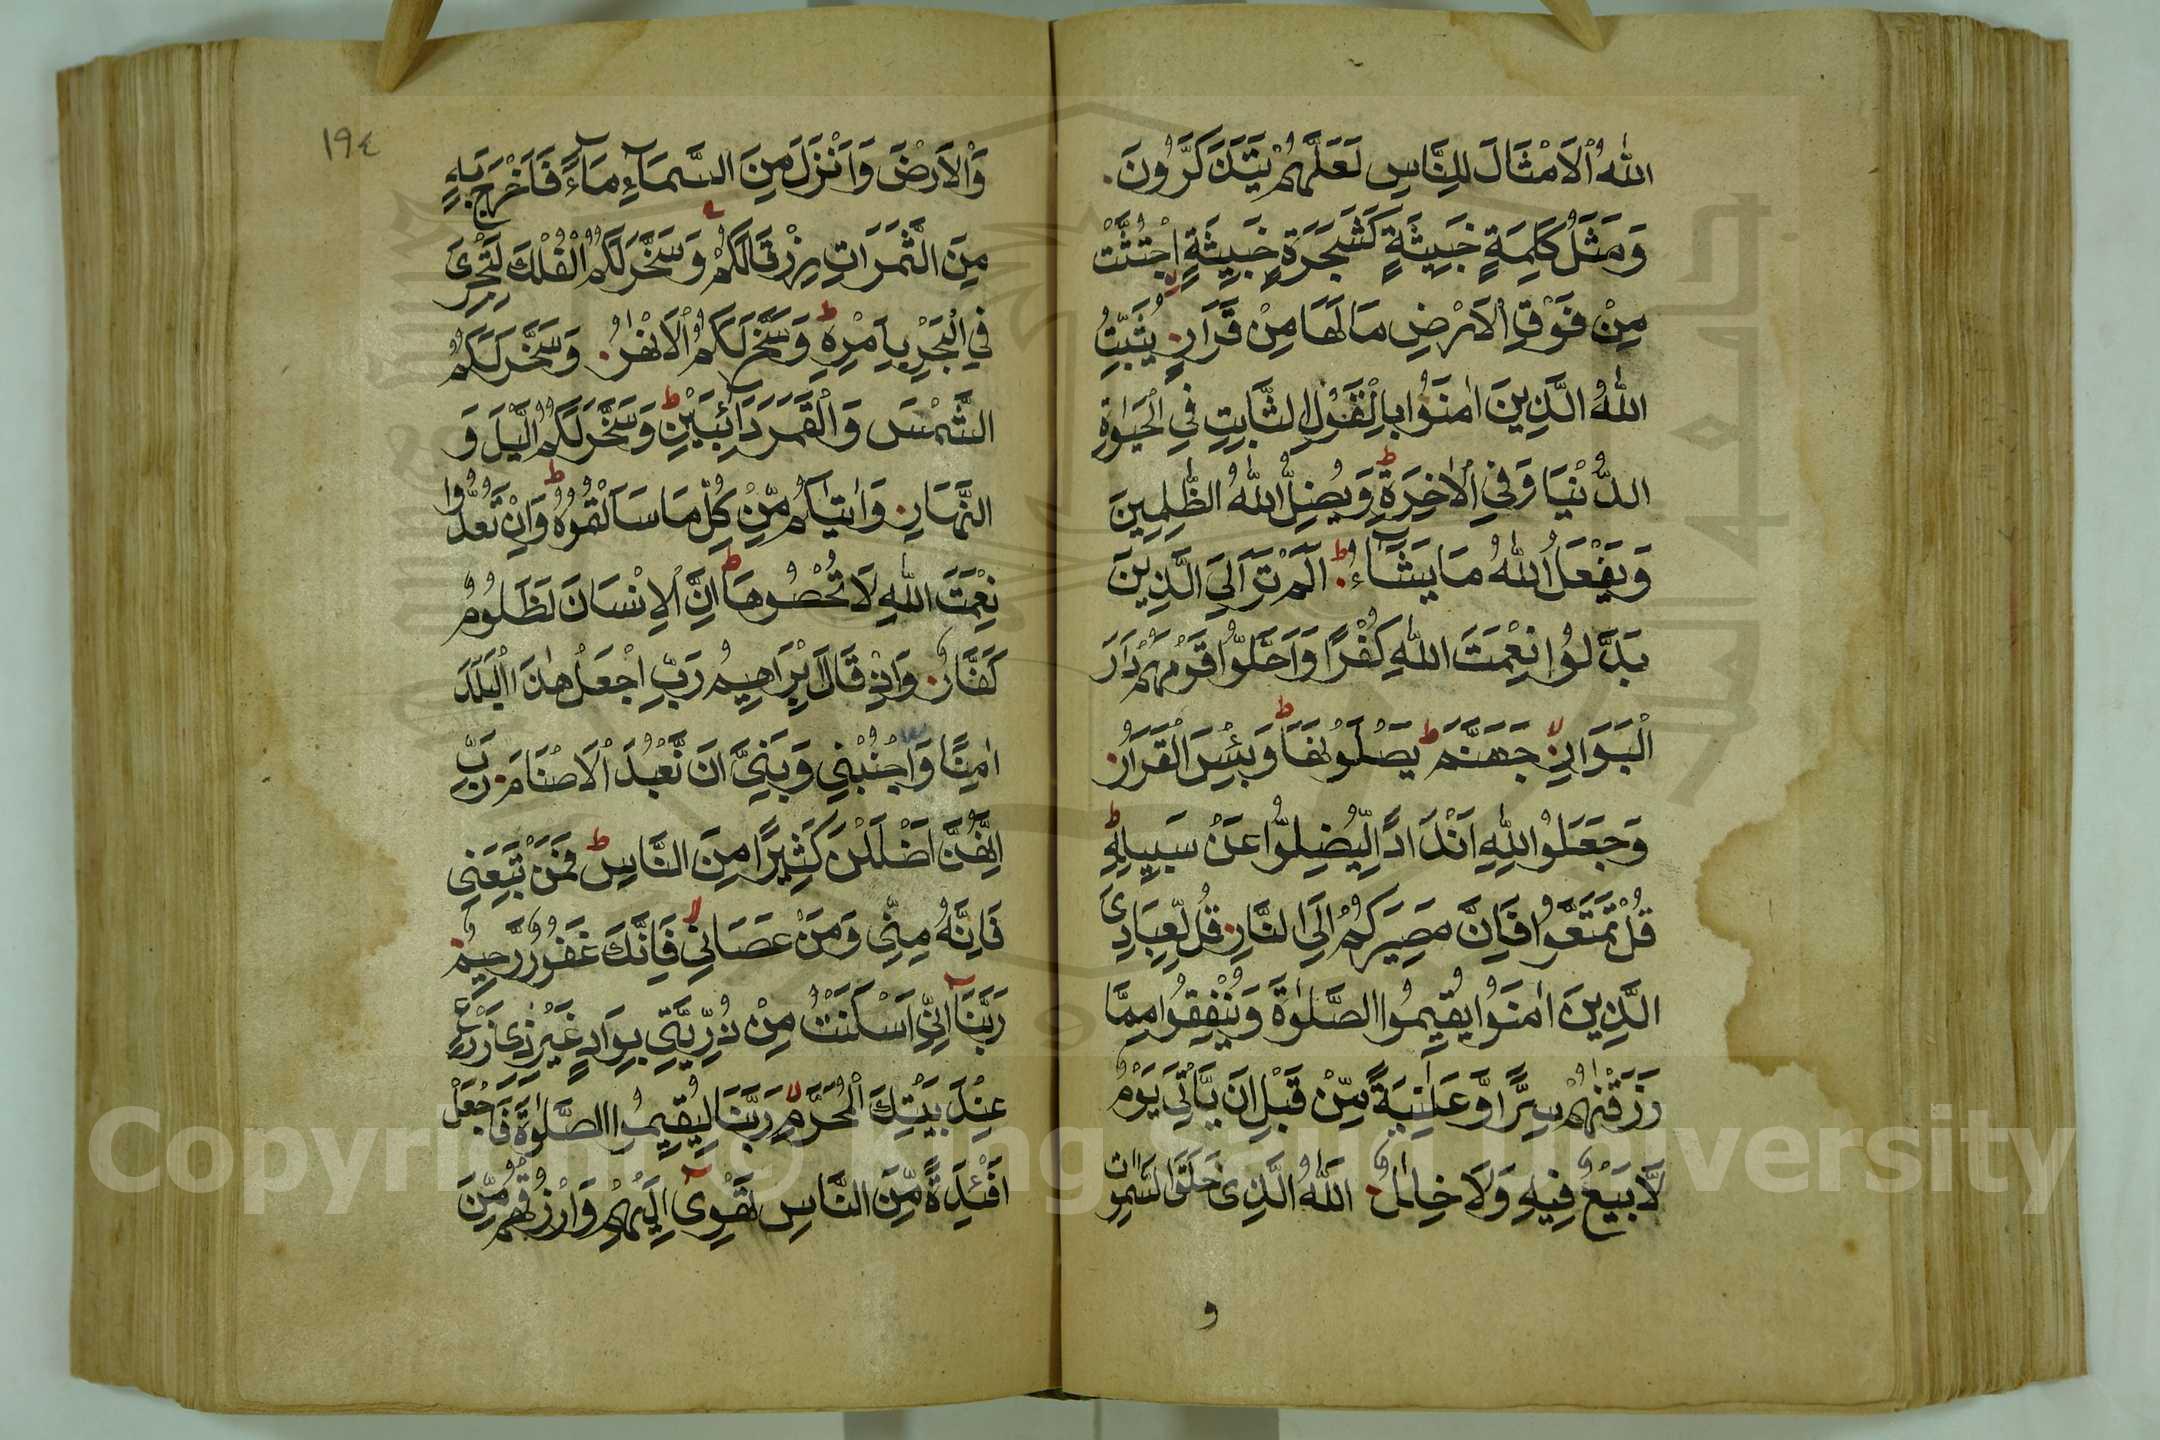 اللّٰهُ الْاَمْثَالَ لِلنَّاسِ لَعَلَّهُمْ يَتَذَكَّرُونَ
وَمَثَلُ كَلِمَةٍ خَبِيثَةٍ كَشَجَرَةٍ خَبِيثَةٍ اجْتُثَّتْ
مِنْ فَوْقِ الْاَرْضِ مَا لَهَا مِنْ قَرَارٍ يُثَبِّتُ
اللّٰهُ الَّذِينَ اٰمَنُوا بِالْقَوْلِ الثَّابِتِ فِي الْحَيٰوةِ
الدُّنْيَا وَفِي الْاٰخِرَةِ ط وَيُضِلُّ اللّٰهُ الظّٰلِمِينَ
وَيَفْعَلُ اللّٰهُ مَا يَشَآءُ ط اَلَمْ تَرَ اِلَى الَّذِينَ
بَدَّلُوا نِعْمَتَ اللّٰهِ كُفْرًا وَاَحَلُّوا قَوْمَهُمْ دَارَ
الْبَوَارِ لا جَهَنَّمَ ط يَصْلَوْنَهَا ط وَبِئْسَ الْقَرَارُ
وَجَعَلُوا لِلّٰهِ اَنْدَادًا لِّيُضِلُّوا عَنْ سَبِيلِهِ ط
قُلْ تَمَتَّعُوا فَاِنَّ مَصِيرَكُمْ اِلَى النَّارِ قُلْ لِّعِبَادِىَ
الَّذِينَ اٰمَنُوا يُقِيمُوا الصَّلٰوةَ وَيُنْفِقُوا مِمَّا
رَزَقْنٰهُمْ سِرًّا وَّعَلَانِيَةً مِّنْ قَبْلِ اَنْ يَّاْتِيَ يَوْمٌ
لَّا بَيْعٌ فِيهِ وَلَا خِلٰلٌ اَللّٰهُ الَّذِى خَلَقَ السَّمٰوٰتِ
و
١٩٤
وَالْاَرْضَ وَاَنْزَلَ مِنَ السَّمَآءِ مَآءً فَاَخْرَجَ بِهِ
مِنَ الثَّمَرَاتِ رِزْقًا لَكُمْ وَسَخَّرَ لَكُمُ الْفُلْكَ لِتَجْرِىَ
فِي الْبَحْرِ بِاَمْرِهِ ط وَسَخَّرَ لَكُمُ الْاَنْهٰرَ وَسَخَّرَ لَكُمُ
الشَّمْسَ وَالْقَمَرَ دَآئِبَيْنِ ط وَسَخَّرَ لَكُمُ الَّيْلَ وَ
النَّهَارَ وَاٰتٰيكُمْ مِّنْ كُلِّ مَا سَاَلْتُمُوهُ ط وَاِنْ تَعُدُّوا
نِعْمَتَ اللّٰهِ لَا تُحْصُوهَا ط اِنَّ الْاِنْسَانَ لَظَلُومٌ
كَفَّارٌ وَاِذْ قَالَ اِبْرَاهِيمُ رَبِّ اجْعَلْ هٰذَا الْبَلَدَ
اٰمِنًا وَاجْنُبْنِي وَبَنِيَّ اَنْ نَّعْبُدَ الْاَصْنَامَ رَبِّ
اِنَّهُنَّ اَضْلَلْنَ كَثِيرًا مِنَ النَّاسِ ط فَمَنْ تَبِعَنِي
فَاِنَّهُ مِنِّي وَمَنْ عَصَانِي لا فَاِنَّكَ غَفُورٌ رَّحِيمٌ
رَبَّنَآ اِنِّي اَسْكَنْتُ مِنْ ذُرِّيَّتِي بِوَادٍ غَيْرِ ذِي زَرْعٍ
عِنْدَ بَيْتِكَ الْمُحَرَّمِ لا رَبَّنَا لِيُقِيمُوا الصَّلٰوةَ فَاجْعَلْ
اَفْئِدَةً مِّنَ النَّاسِ تَهْوِيٓ اِلَيْهِمْ وَارْزُقْهُمْ مِّنَ
Copyright © King Saud University
جامعة الملك سعود